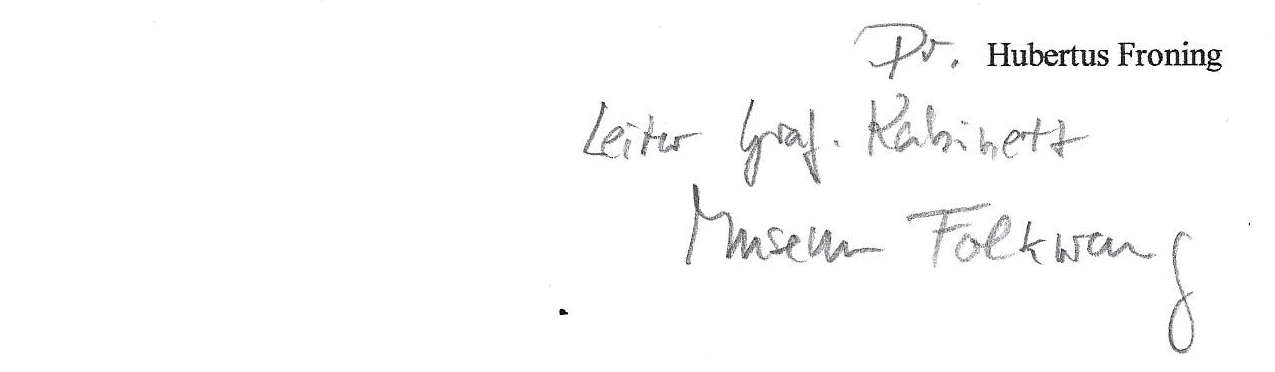 Dr. Hubertus Froning
Leiter Graf. Kabinett
Museum Folkwang